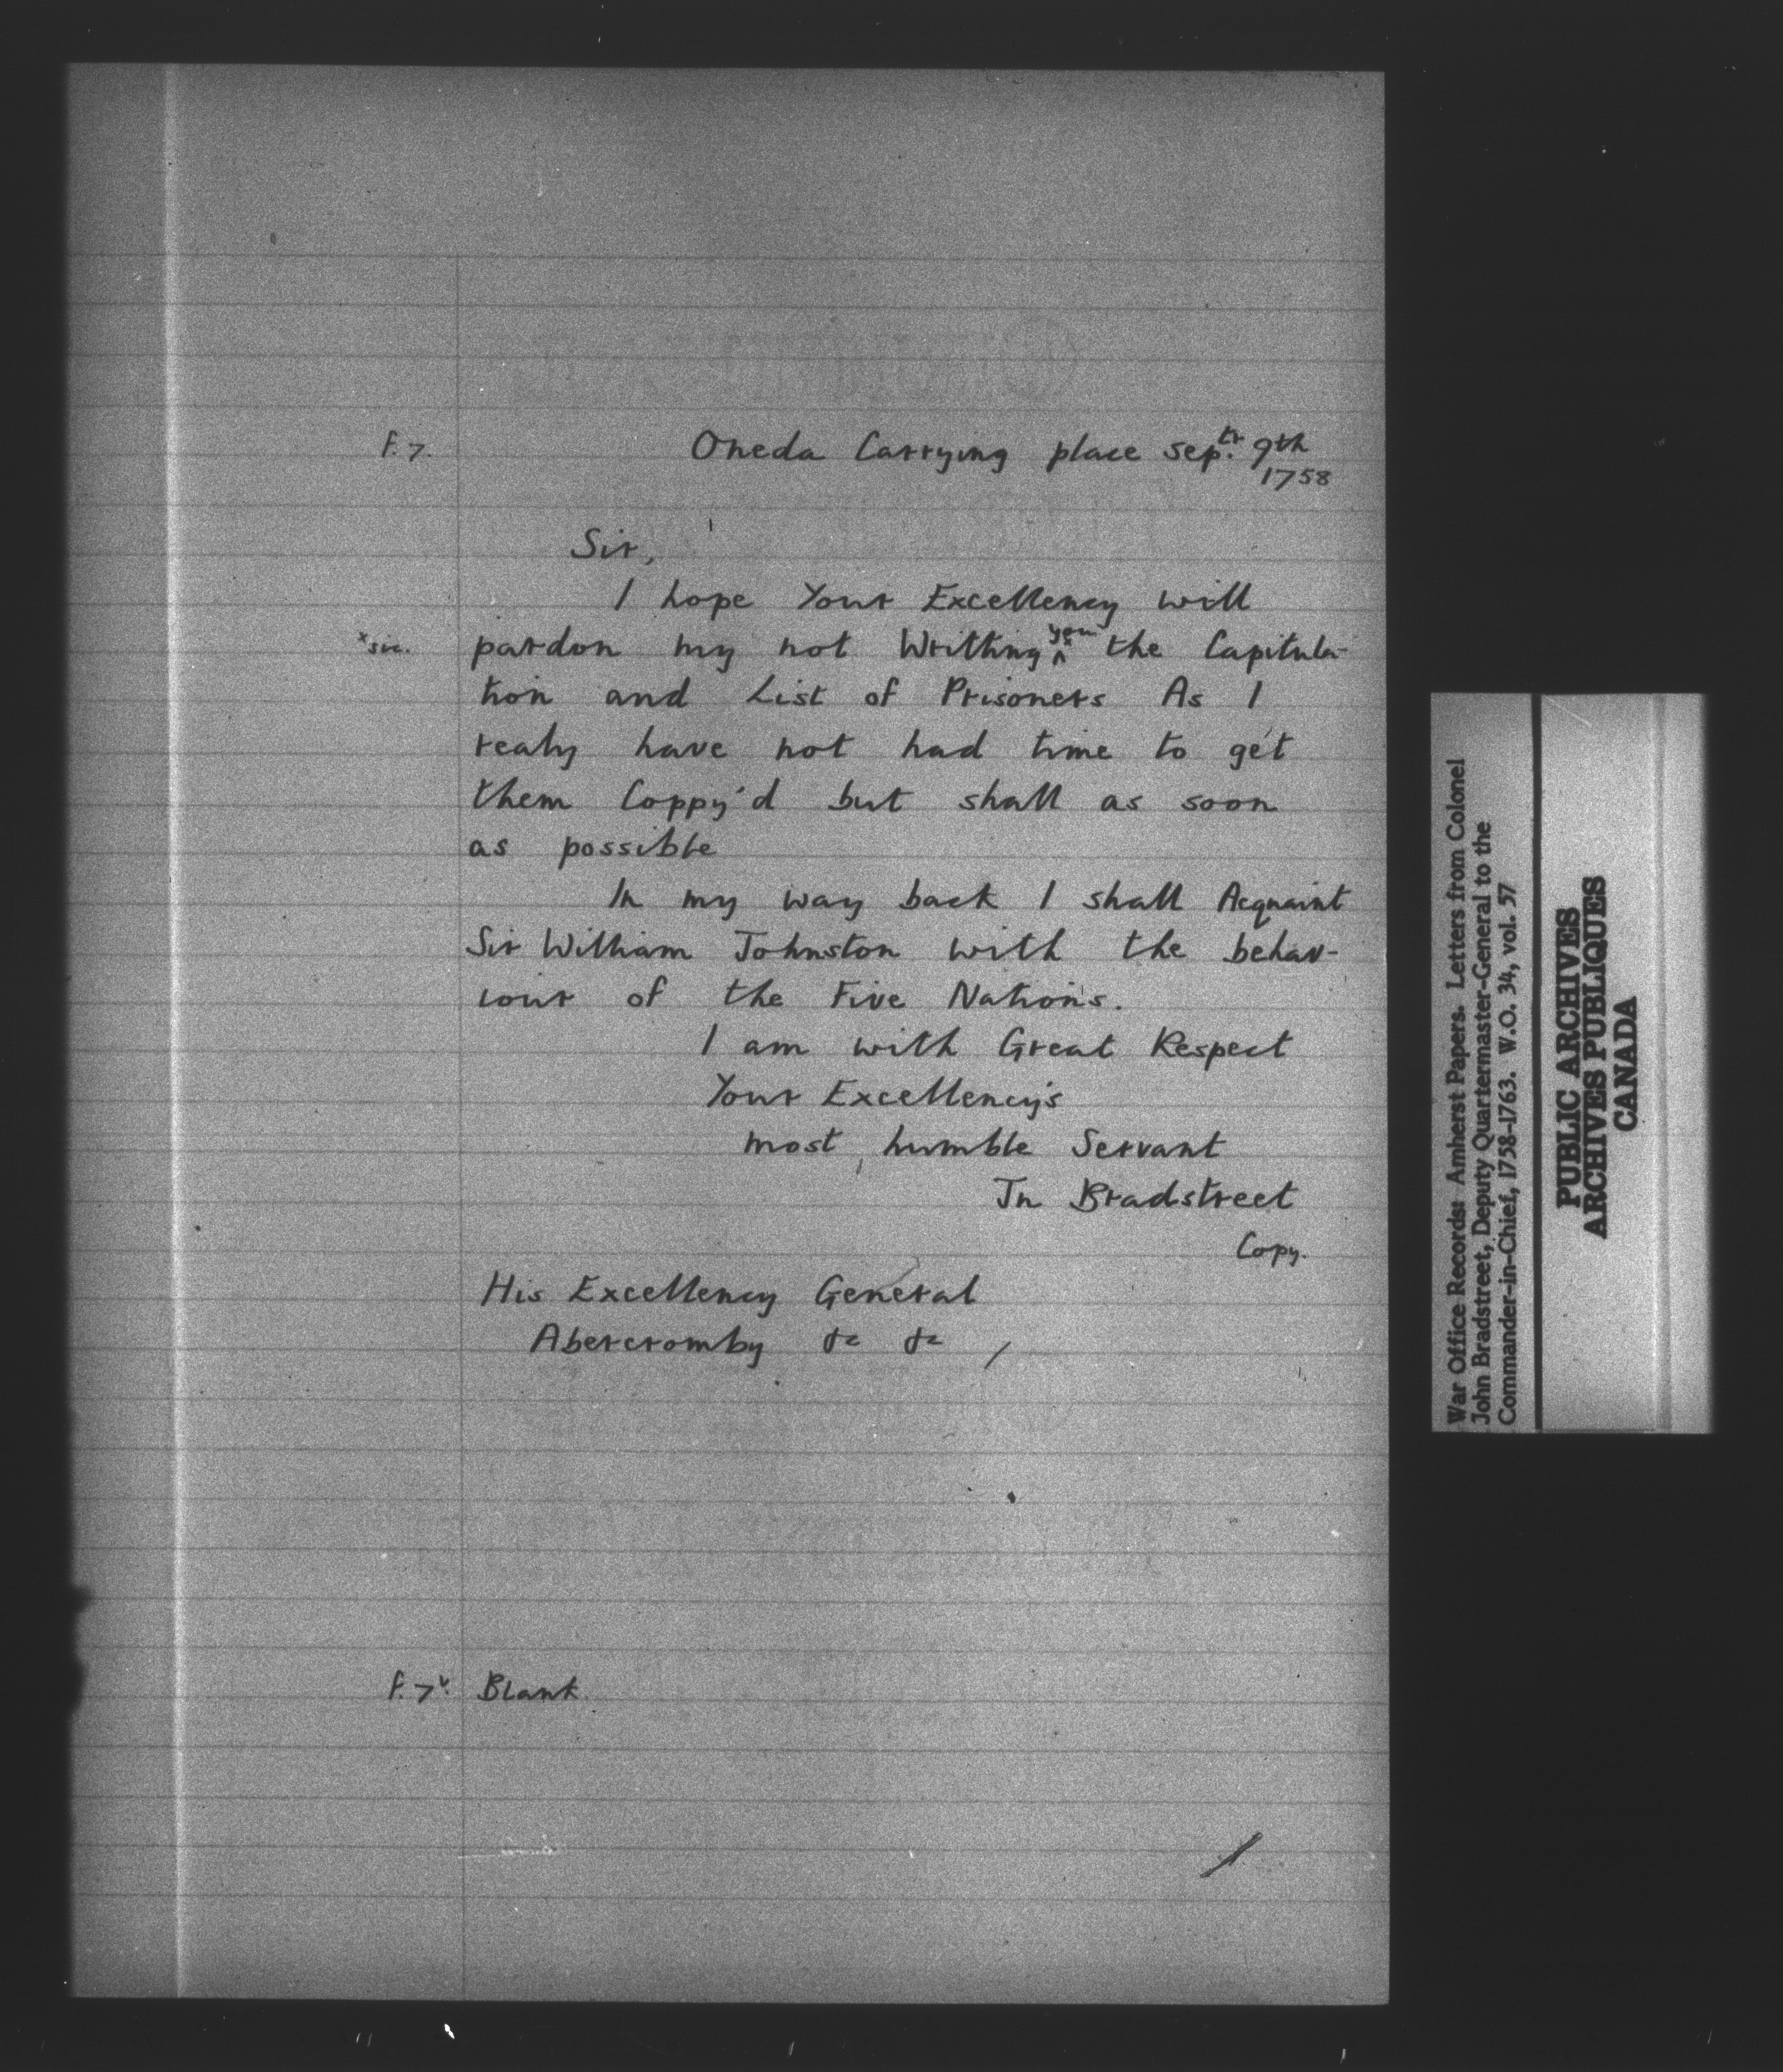 f. 7.
Oneda Carrying place Sep.tr 9th
1758
Sir,
I hope Your Excellency will
x sic.
pardon my not Writting you x the Capitula-
tion and List of Prisoners As I
realy have not had time to get
them Coppy'd but shall as soon
as possible
In my way back I shall Acquaint
Sir William Johnston with the behav-
iour of the Five Nations.
I am with Great Respect
Your Excellency's
most humble Servant
Jn Bradstreet
Copy.
His Excellency General
Abercromby &c &c /
f. 7v. Blank.
War Office Records: Amherst Papers. Letters from Colonel
John Bradstreet, Deputy Quartermaster-General to the
Commander-in-Chief, 1758-1763. W.O. 34, vol. 57
PUBLIC ARCHIVES
ARCHIVES PUBLIQUES
CANADA